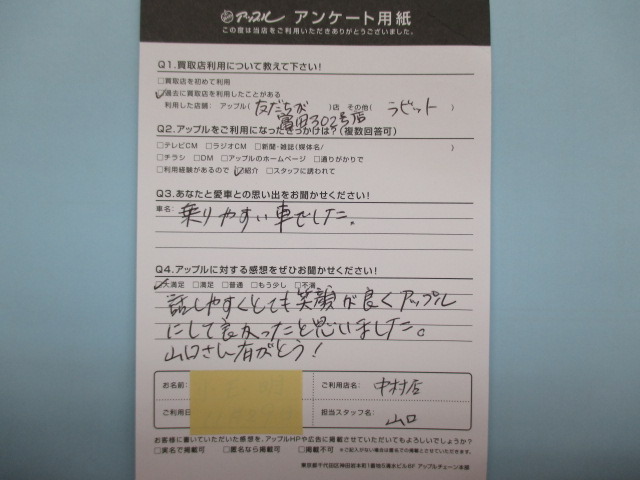 アップル アンケート用紙
この度は当店をご利用いただきありがとうございました。
Q1.買取店利用について教えて下さい!
□買取店を初めて利用
□過去に買取店を利用したことがある
利用した店舗: アップル( 友だちが )店 その他( ラビット )
富田302号店
Q2.アップルをご利用になったきっかけは?(複数回答可)
□テレビCM □ラジオCM □新聞・雑誌(媒体名/ )
□チラシ □DM □アップルのホームページ □通りがかりで
□利用経験があるので ☑紹介 □スタッフに誘われて
Q3.あなたと愛車との思い出をお聞かせください!
車名: 乗りやすい車でした。
Q4.アップルに対する感想をぜひお聞かせください!
☑大満足 □満足 □普通 □もう少し □不満
話しやすくとても笑顔が良くアップル
にして良かったと思いました。
山口さん有がとう!
お名前: ご利用店名: 中村店
ご利用日 担当スタッフ名: 山口
お客様に書いていただいた感想を、アップルHPや広告に掲載させていただいてもよろしいでしょうか?
□実名で掲載可 □匿名なら掲載可 □掲載不可 ※ご記入がない場合は匿名での掲載とさせていただきます。
東京都千代田区神田岩本町1番地5清水ビル6F アップルチェーン本部